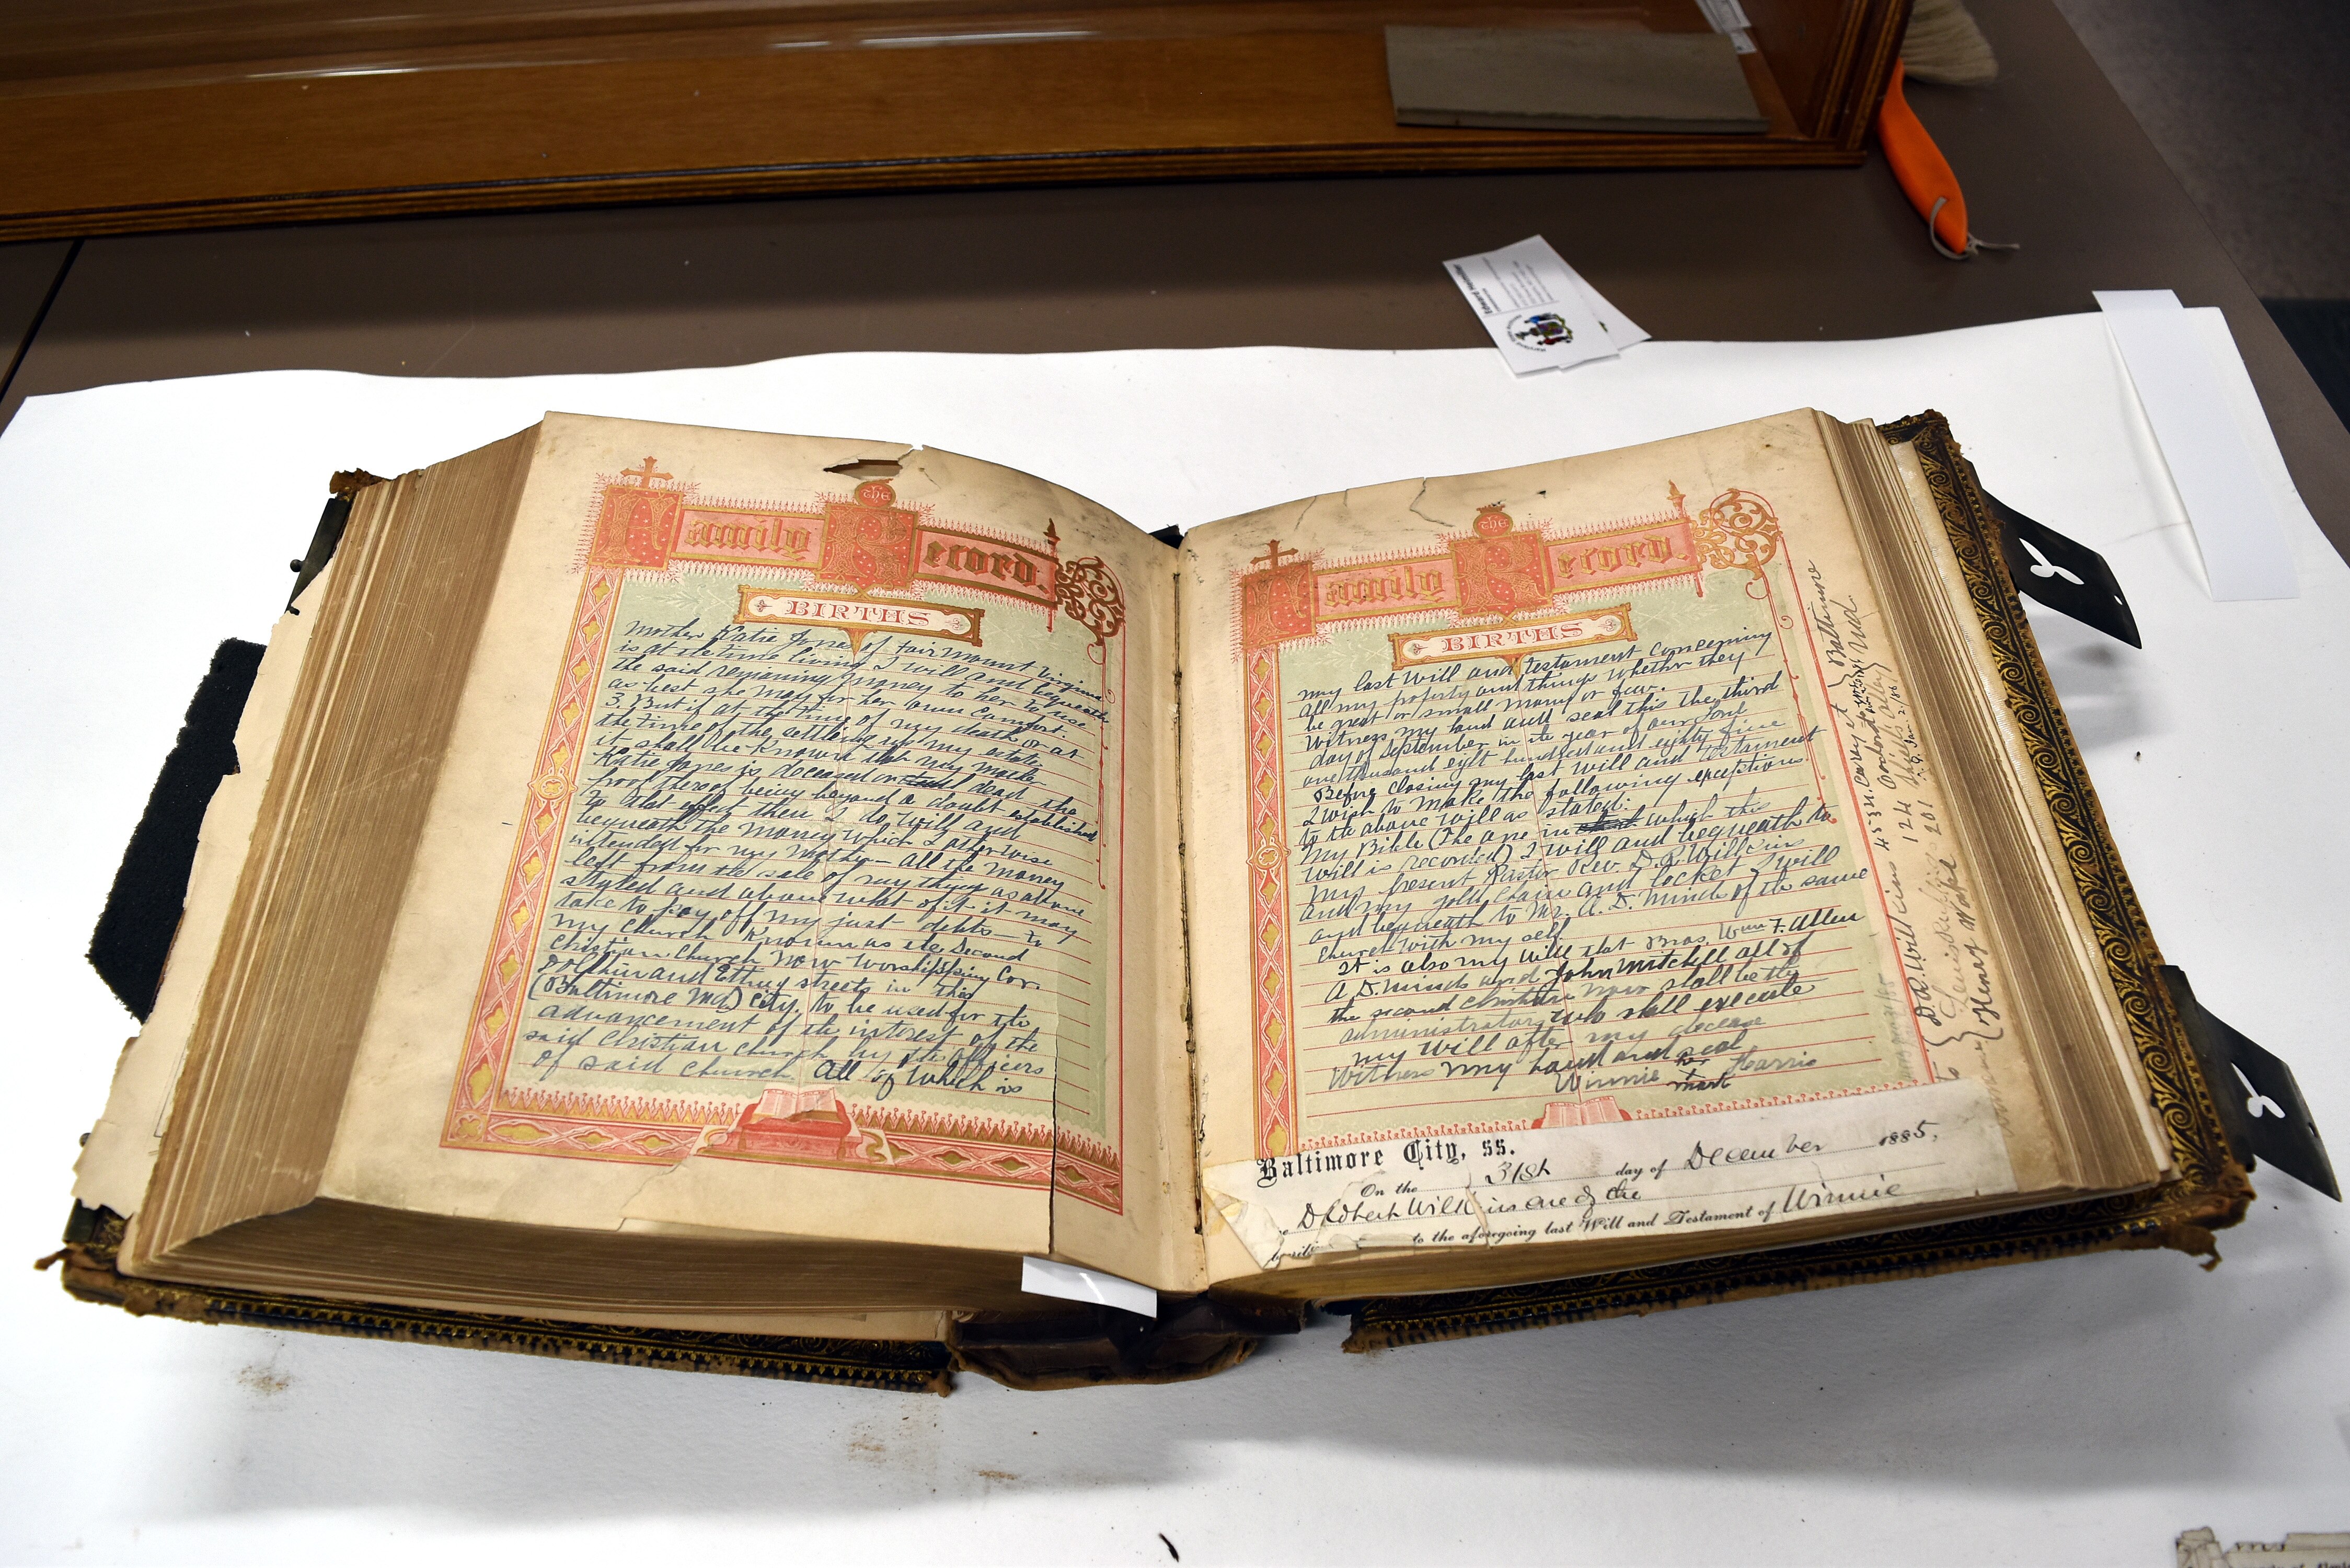 The
Family Record.
BIRTHS
Mother Katie Jones of fair mount Virginia
is at the time living I will and bequeath
the said remaining money to her to use
as best she may for her own comfort.
3. But if at the time of my death or at
the time of the settling up my estate
it shall be known that my mother
Katie Jones is deceased or dead the
proof thereof being beyond a doubt established
to that effect then I do will and
bequeath the money which I otherwise
intended for my mother— All the money
left from the sale of my things as above
styled and above what of it it may
take to pay off my just debts— to
my Church Known as the Second
Christian Church now worshipping Cor.
Dolphin and Etting streets in this
(Baltimore Md) City. to be used for the
advancement of the interest of the
said Christian Church by the officers
of said Church. All of which is
The
Family Record.
BIRTHS
my last will and testament concerning
all my property and things whether they
be great or small many or few.
Witness my hand and seal this the third
day of September in the year of our Lord
one thousand eight hundred and eighty five
Before closing my last will and testament
I wish to make the following exceptions
to the above will as stated:
My Bible (The one in which this
will is recorded) I will and bequeath to
my present Pastor Rev. D. R. Wilkins
and my gold chain and locket I will
and bequeath to Mr. A. D. Minds of the same
church with my self.
It is also my will that Bros. Wm F. Allen
A. D. Minds and John Mitchell all of
the second christian now shall be the
administrators who shall execute
my will after my decease
Witness my hand and seal
Winnie her Harris
mark
D. R. Wilkins 453 N. Carey st Baltimore
Md.
124
201
Henry
Baltimore City, ss.
On the 31st day of December 1885,
D Robert Wilkins one of the
to the aforegoing last Will and Testament of Winnie